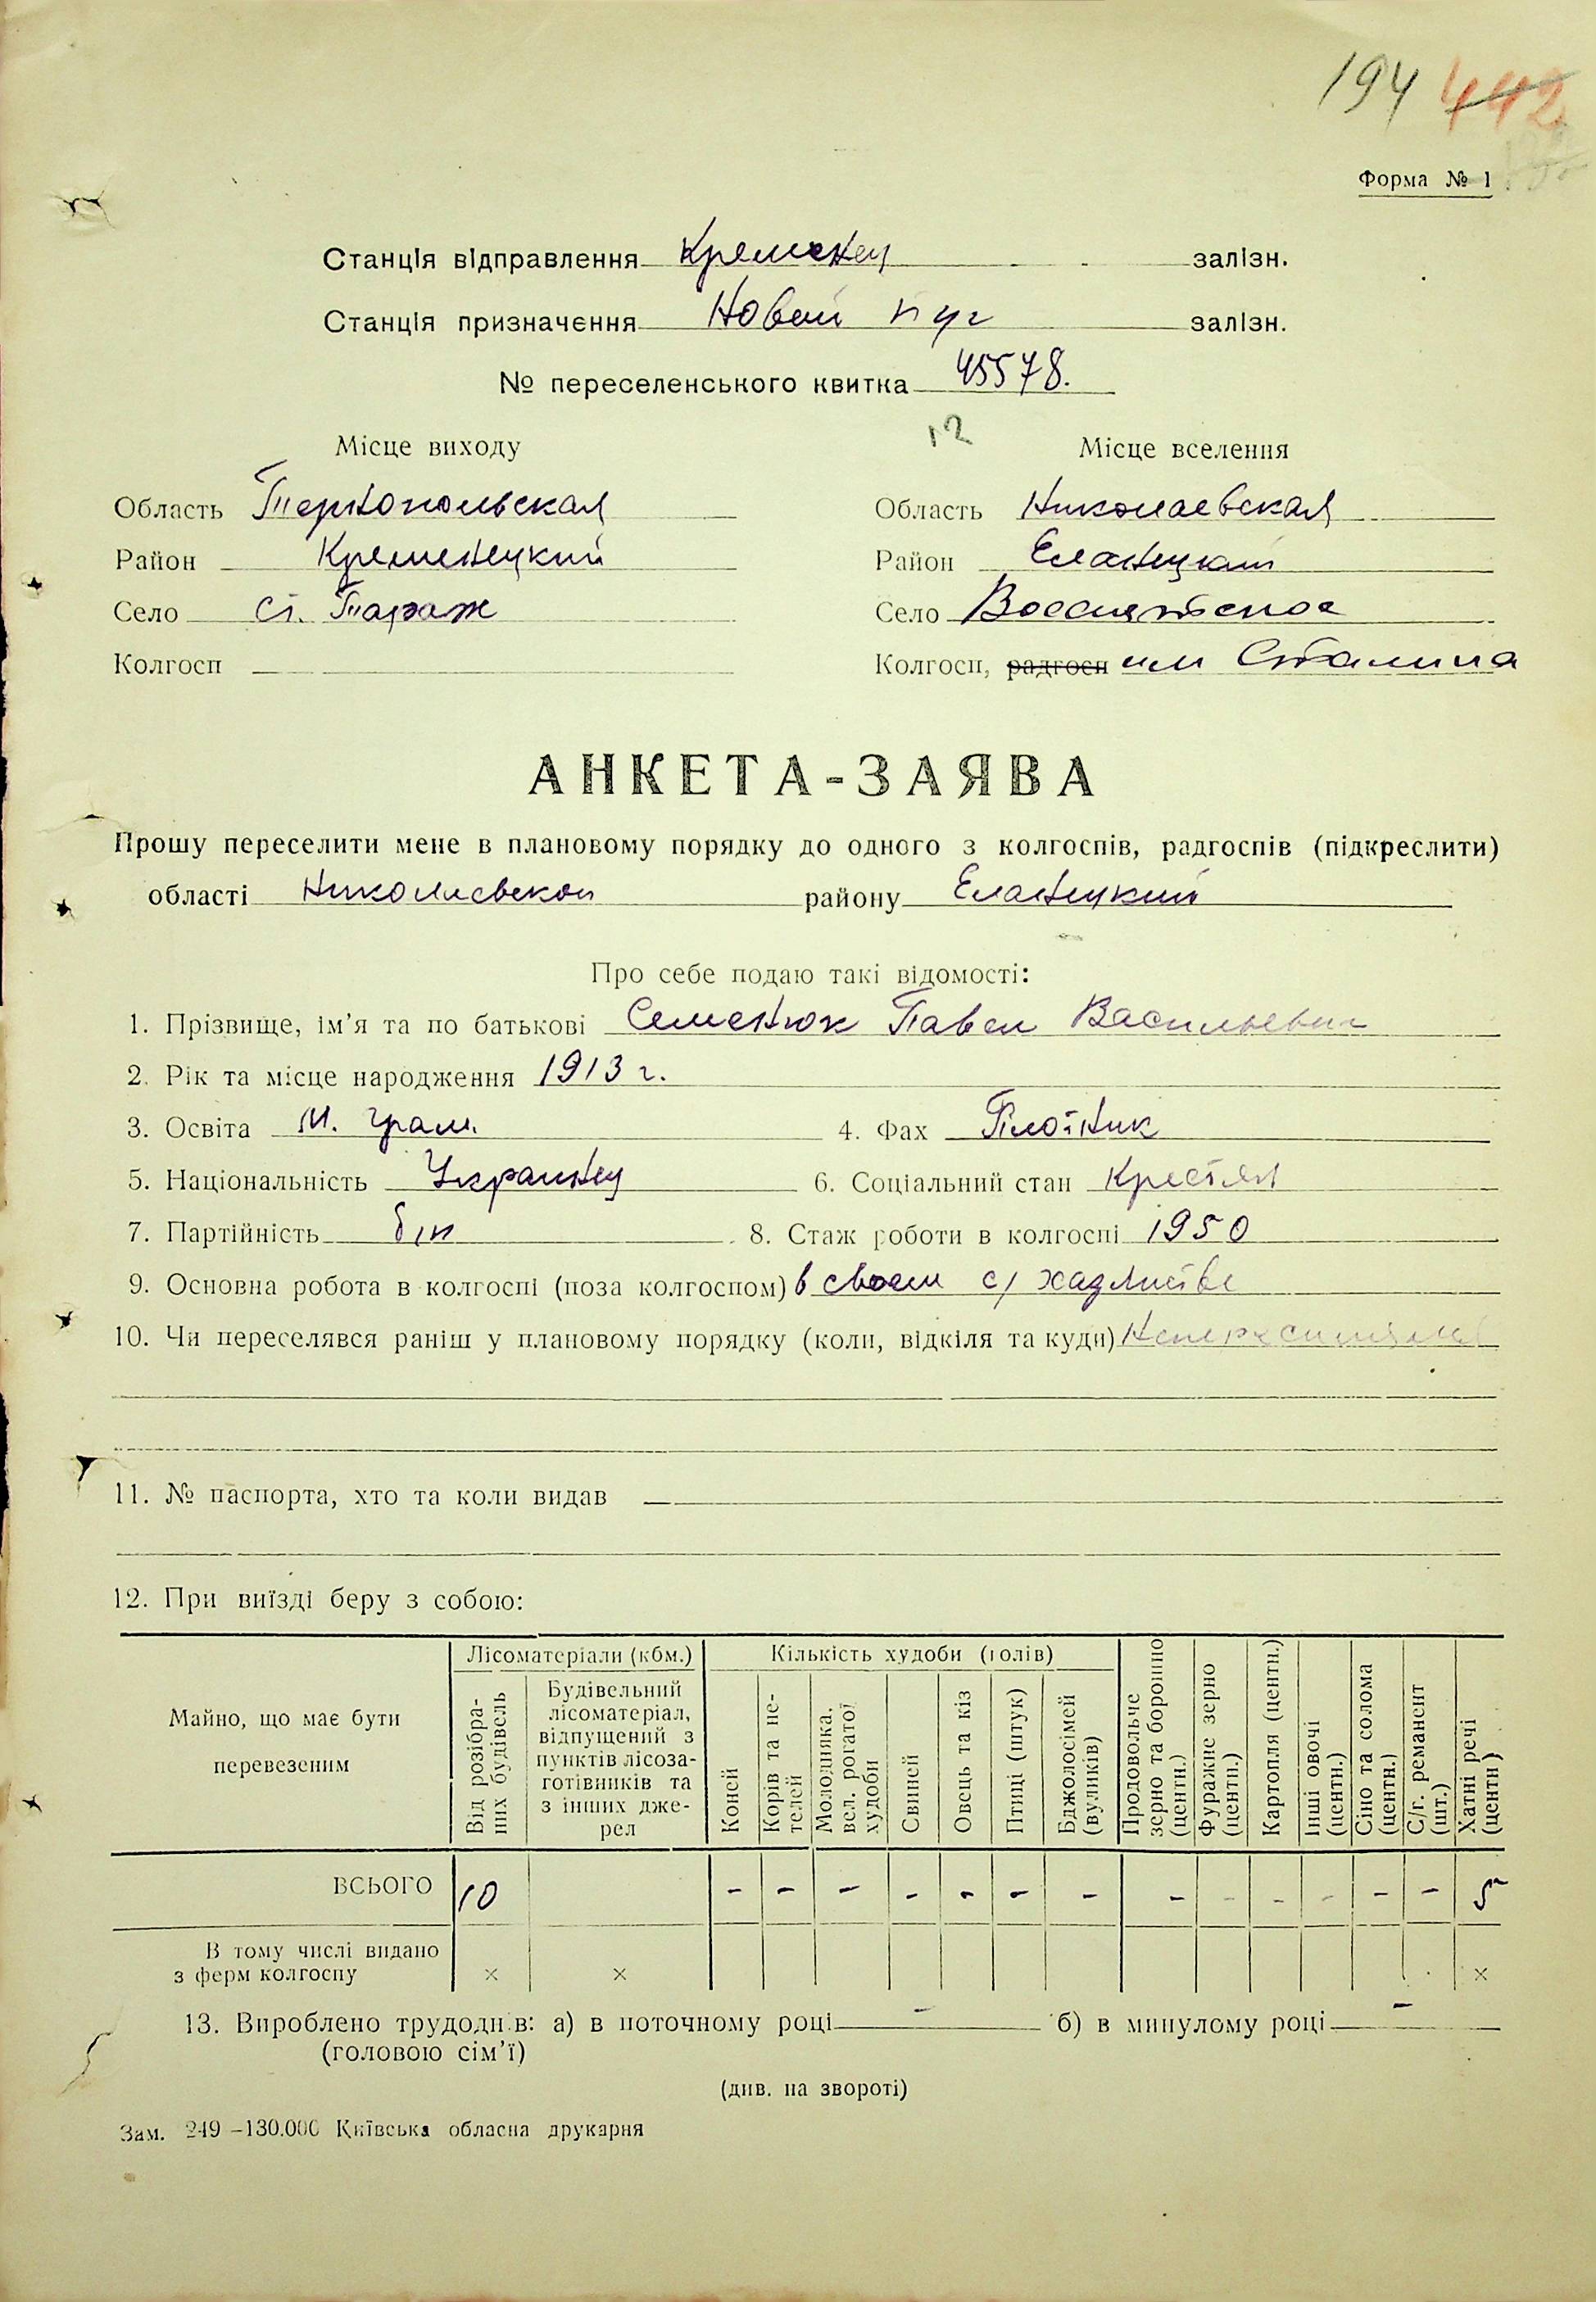 194 442
Форма № 1
Станція відправлення Кременец залізн.
Станція призначення Новый Буг залізн.
№ переселенського квитка 45578.
12
Місце виходу Місце вселення
Область Тернопольская Область Николаевская
Район Кременецкий Район Еланецкий
Село Ст. Тараж Село Возсиятское
Колгосп — Колгосп, радгосп им Сталина
АНКЕТА-ЗАЯВА
Прошу переселити мене в плановому порядку до одного з колгоспів, радгоспів (підкреслити)
області Николаевской району Еланецкий
Про себе подаю такі відомості:
1. Прізвище, ім’я та по батькові Семенюк Павел Васильевич
2. Рік та місце народження 1913 г.
3. Освіта м. грам. 4. Фах Плотник
5. Національність Украинец 6. Соціальний стан Крестян
7. Партійність б/п 8. Стаж роботи в колгоспі 1950
9. Основна робота в колгоспі (поза колгоспом) в своем с/ хазяйстве
10. Чи переселявся раніш у плановому порядку (коли, відкіля та куди)
11. № паспорта, хто та коли видав —
12. При виїзді беру з собою:
Майно, що має бути перевезеним
Лісоматеріали (кбм.)
Від розібраних будівель
Будівельний лісоматеріал, відпущений з пунктів лісозаготівників та з інших джерел
Кількість худоби (голів)
Коней
Корів та нетелей
Молодняка, вел. рогатої худоби
Свиней
Овець та кіз
Птиці (штук)
Бджолосімей (вуликів)
Продовольче зерно та борошно (центн.)
Фуражне зерно (центн.)
Картопля (центн.)
Інші овочі (центн.)
Сіно та солома (центн.)
С/г. реманент (шт.)
Хатні речі (центн)
ВСЬОГО 10 - - - - - - - - - - - - - 5
В тому числі видано
з ферм колгоспу × × ×
13. Вироблено трудоднів: а) в поточному році - б) в минулому році -
(головою сім’ї)
(див. на звороті)
Зам. 249 –130.000 Київська обласна друкарня